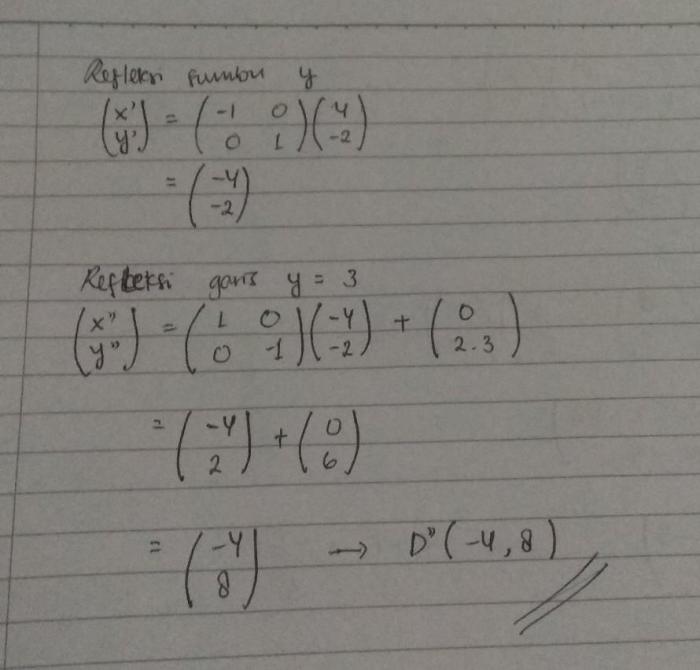 Refleksi sumbu y
(x' y') = (-1 0 0 1)(4 -2)
= (-4 -2)
Refleksi garis y = 3
(x" y") = (1 0 0 -1)(-4 -2) + (0 2.3)
= (-4 2) + (0 6)
= (-4 8) → D"(-4, 8)